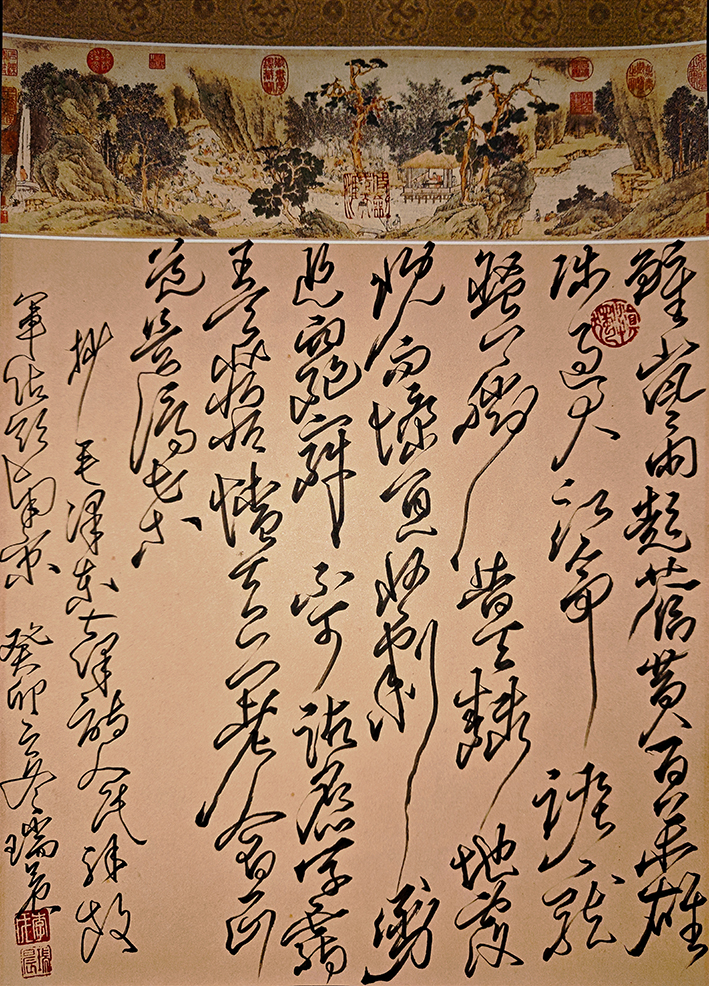 鐘山風雨起蒼黄百萬雄
师過大江虎踞龙
盤今勝昔天翻地覆
慨而慷宜将剩勇
追窮寇不可沽名学霸
王天若有情天亦老人间正
道是滄桑
抄毛泽东七律诗人民解放
軍佔领南京 癸卯之冬瑞晨